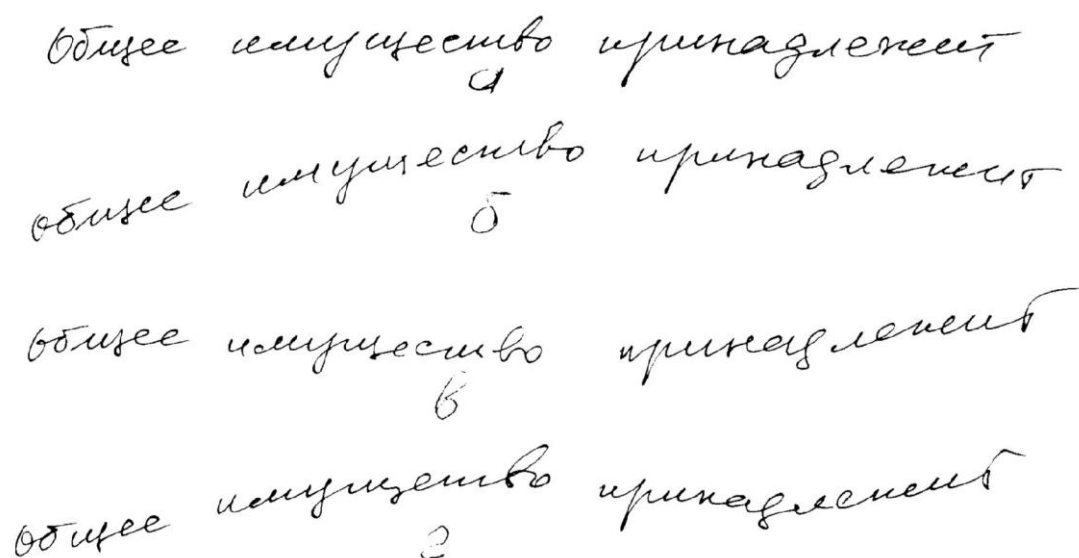 Общее имущество принадлежит
а
общее имущество принадлежит
б
общее имущество принадлежит
в
общее имущество принадлежит
г